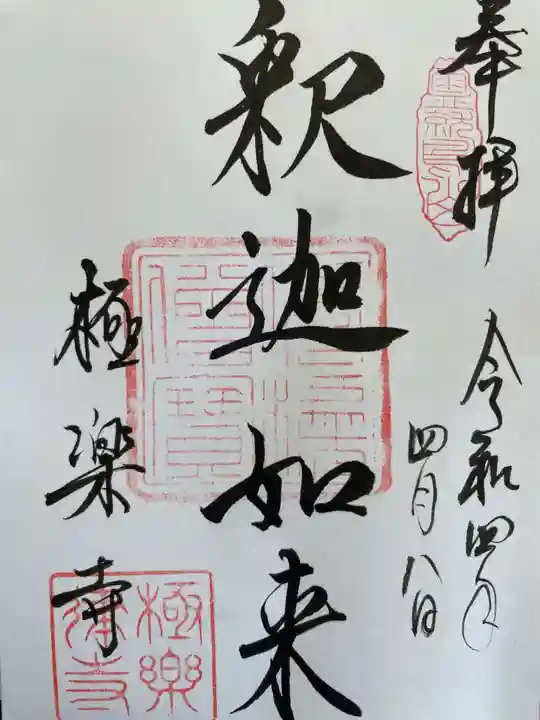 奉拝
令和四年
四月八日
釈迦如来
極楽寺
極樂禅寺